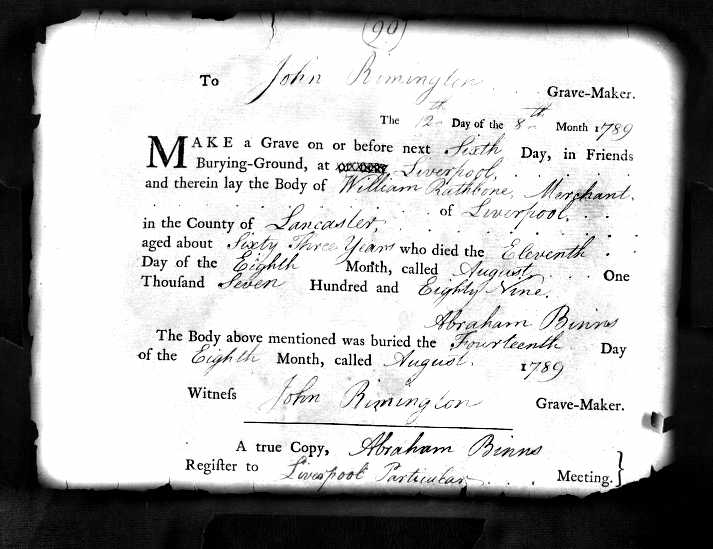 (90)
To John Rimington Grave-Maker.
The 12th Day of the 8th Month 1789
MAKE a Grave on or before next Sixth Day, in Friends
Burying-Ground, at Liverpool,
and therein lay the Body of William Rathbone, Merchant.
of Liverpool,
in the County of Lancaster,
aged about Sixty Three Years who died the Eleventh
Day of the Eighth Month, called August One
Thouſand Seven Hundred and Eighty Nine.
Abraham Binns
The Body above mentioned was buried the Fourteenth Day
of the Eighth Month, called August. 1789
Witneſs John Rimington Grave-Maker.
A true Copy, Abraham Binns
Regiſter to Liverpool Particular Meeting.}